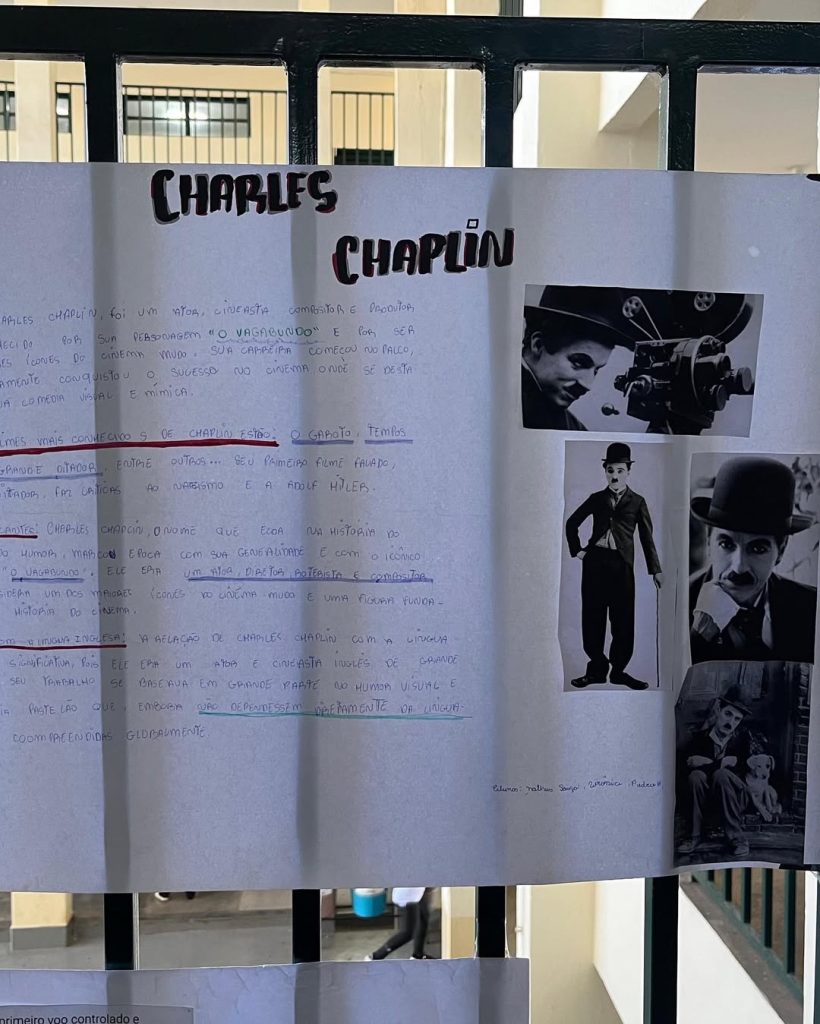 CHARLES
CHAPLIN
ARLES CHAPLIN, FOI UM ATOR, CINEASTA COMPOSITOR E PRODUTOR
ECIDO POR SUA PERSONAGEM "O VAGABUNDO" E POR SER
ES ÍCONES DO CINEMA MUDO. SUA CARREIRA COMEÇOU NO PALCO,
AMENTE CONQUISTOU O SUCESSO NO CINEMA ONDE SE DESTA
UA COMEDIA VISUAL E MÍMICA.
LMES MAIS CONHECIDO S DE CHAPLIN ESTÃO: O GAROTO, TEMPOS
GRANDE DITADOR, ENTRE OUTROS... SEU PRIMEIRO FILME FALADO,
ITADOR, FAZ CRÍTICAS AO NAZISMO E A ADOLF HITLER.
CHARLES CHAPLIN, O NOME QUE ECOA NA HISTORIA DO
DO HUMOR, MARCOU EPOCA COM SUA GENIALIDADE E COM O ICÔNICO
"O VAGABUNDO". ELE ERA UM ATOR, DIRETOR ROTERISTA E COMPOSITOR
SIDERA UM DOS MAIORES ÍCONES DO CINEMA MUDO E UMA FIGURA FUNDA-
HISTORIA DO CINEMA.
OM A LINGUA INGLESA: A RELAÇÃO DE CHARLES CHAPLIN COM A LÍNGUA
SIGNIFICATIVA, POIS ELE ERA UM ATOR E CINEASTA INGLÊS DE GRANDE
SEU TRABALHO SE BASEAVA EM GRANDE PARTE NO HUMOR VISUAL E
IA PASTELÃO QUE, EMBORA NÃO DEPENDESSEM DIRETAMENTE DA LINGUA.
COOMPREENDIDAS GLOBALMENTE.
Alunos: Matheus Souza, Verônica, Pedro H
primeiro voo controlado e